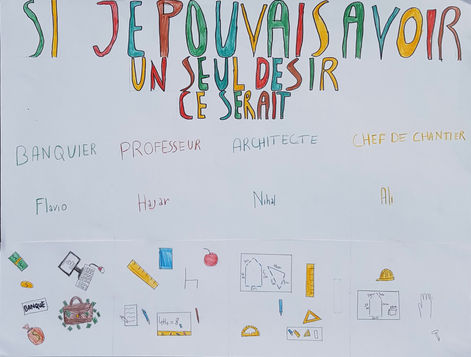 SI JE POUVAIS AVOIR
UN SEUL DESIR
CE SERAIT
BANQUIER PROFESSEUR ARCHITECTE CHEF DE CHANTIER
Flavio Hajar Nihal Ali
BANQUE